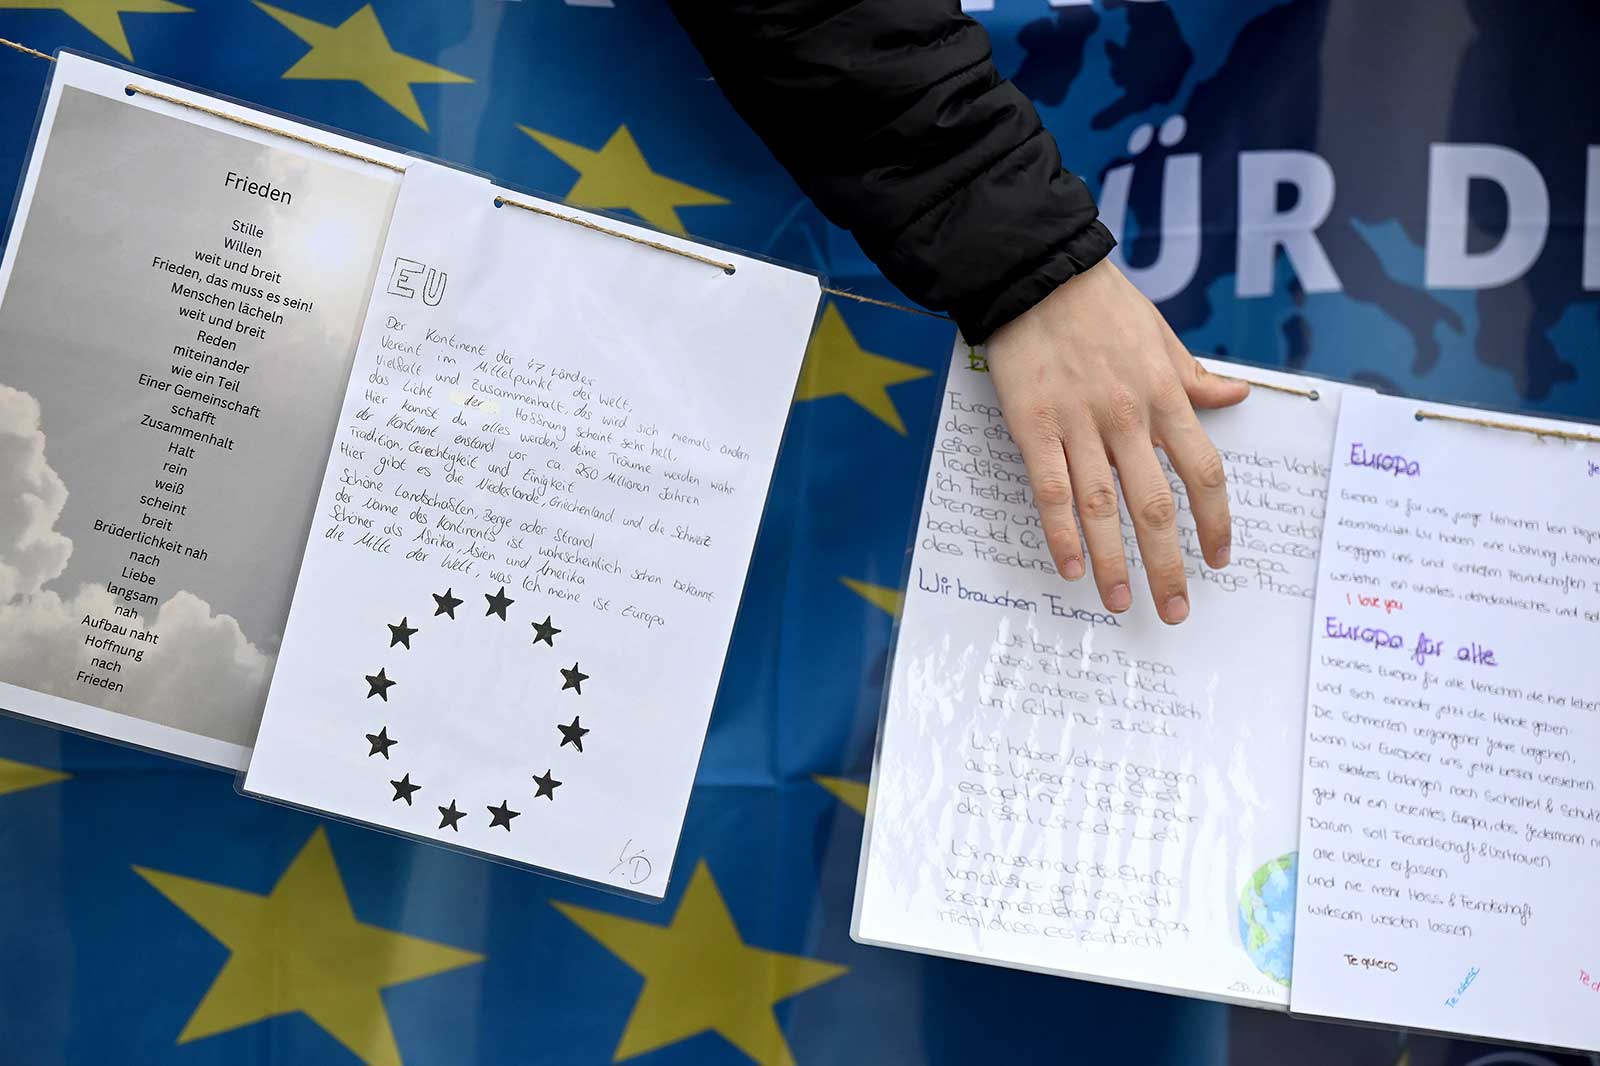 ÜR DI
Frieden
Stille
Willen
weit und breit
Frieden, das muss es sein!
Menschen lächeln
weit und breit
Reden
miteinander
wie ein Teil
Einer Gemeinschaft
schafft
Zusammenhalt
Halt
rein
weiß
scheint
breit
Brüderlichkeit nah
nach
Liebe
langsam
nah
Aufbau naht
Hoffnung
nach
Frieden
EU
Der Kontinent der 47 Länder
Vereint im Mittelpunkt der Welt,
Vielfalt und Zusammenhalt, das wird sich niemals ändern
das Licht der Hoffnung scheint sehr hell,
Hier kannst du alles werden, deine Träume werden wahr
der Kontinent enstand vor ca. 250 Millionen Jahren
Tradition, Gerechtigkeit und Einigkeit
Hier gibt es die Niederlande, Griechenland und die Schweiz
Schöne Landschaften, Berge oder Strand
der Name des Kontinents ist wahrscheinlich schon bekannt
Schöner als Afrika, Asien und Amerika
die Mitte der Welt, was Ich meine ist Europa
Europa
der
eine
Traditione
ich Freiheit
Grenzen und
bedeutet für
des Friedens lange Phase
Wir brauchen Europa
Wir brauchen Europa
alles andere ist
und führt nur zurück
Wir haben Lehren gezogen
aus Kriege und Streit
es geht nur Miteinander
da sind wir sehr weit
Wir müssen auf die Straße
von alleine geht es nicht
zusammenstehen für Europa
nicht, dass es zerbricht
Europa
Europa ist für uns junge Menschen kein
Wir haben eine Wöhrung, können
begegnen uns und schließen Freundschaften
weiterhin ein starkes, demokratisches und
I love you
Europa für alle
Vereintes Europa für alle Menschen die hier leben
und sich einander jetzt die Hände geben.
Die Schmerzen vergangener Jahre vergehen,
wenn wir Europäer uns jetzt besser verstehen
Ein starkes Verlangen nach Sicherheit & Schutz
gibt nur ein vereintes Europa, das Jedermann
Darum soll Freundschaft & Vertrauen
alle Völker erfassen
und nie mehr Hass & Feindschaft
wirksam werden lassen
Te quiero
Te iubesc